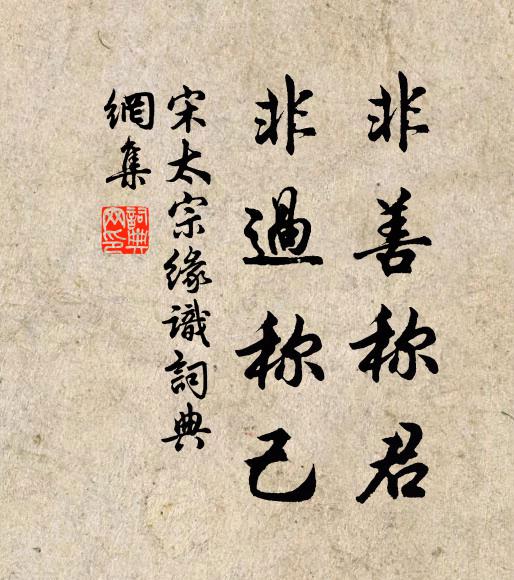 非善称君
非過称己
宋太宗緣識詞典
網集
詞典
网印